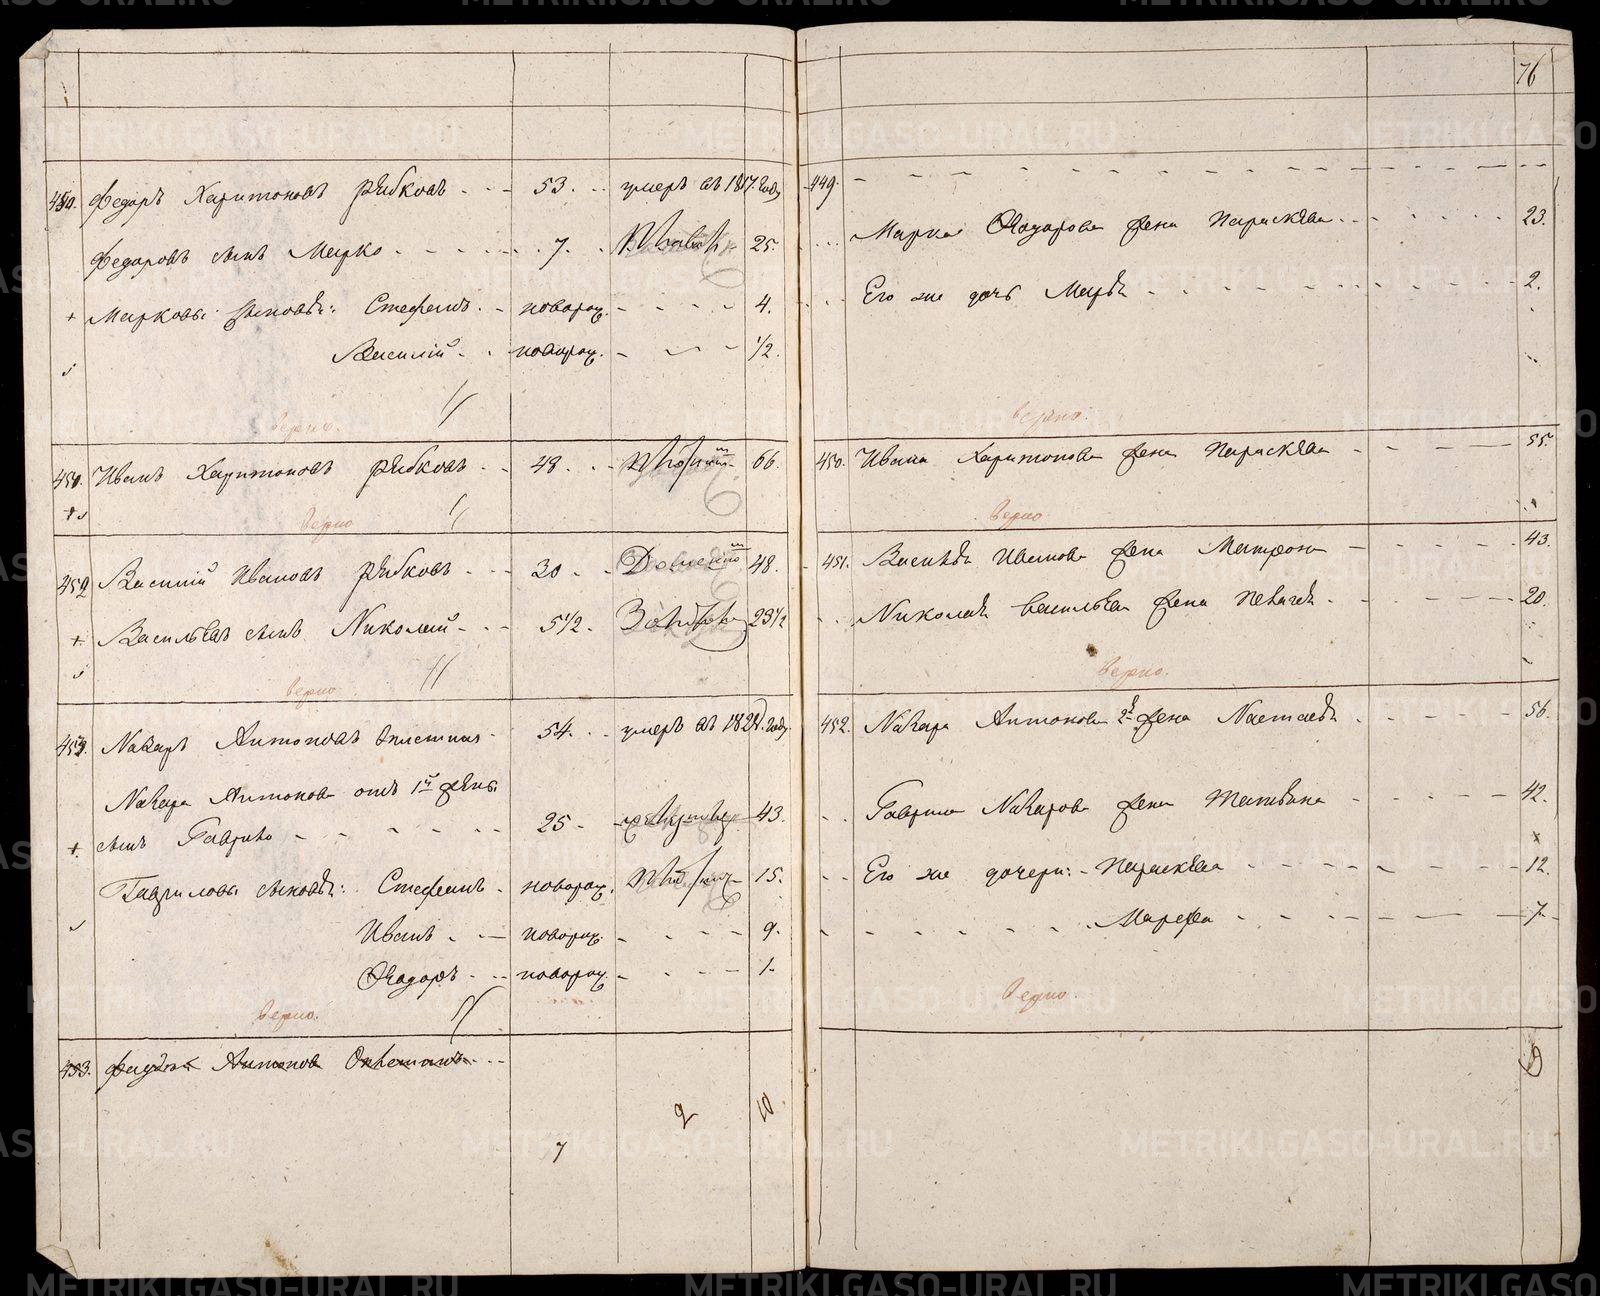 76
450. Федоръ Харитоновъ Рябковъ 53. умеръ въ 1817. году
Федоровъ сынъ Марко 7. 25.
Марковы сыновья: Стефанъ новорож. 4.
Василій новорож. 1/2.
верно.
Иванъ Харитоновъ Рябковъ 48. 66.
верно
Василій Ивановъ Рябковъ 30 48.
Васильевъ сынъ Николай 5 1/2. 23 1/2
верно
Назаръ Антоновъ 54. умеръ въ году
Назара Антонова отъ 1й жены
сынъ Гаврило 25 43.
Гавриловы сыновья: Стефанъ новорож. 15.
Иванъ новорож. 9.
Ѳедоръ новорож. 1.
верно.
453. Антоновъ
7 9 10
449.
Марка Ѳедорова жена Парасковья 23.
Его же дочь Марья 2.
верно.
450. Ивана Харитонова жена Парасковья 55
верно
451. Василья Иванова жена Матрона 43.
Николая Васильева жена Пелагея 20.
верно.
452. Назара Антонова 2я жена Настасья 56.
Гаврила Назарова жена Татьяна 42.
Его же дочери: Парасковья 12.
Марфа 7.
верно.
9
METRIKI.GASO-URAL.RU